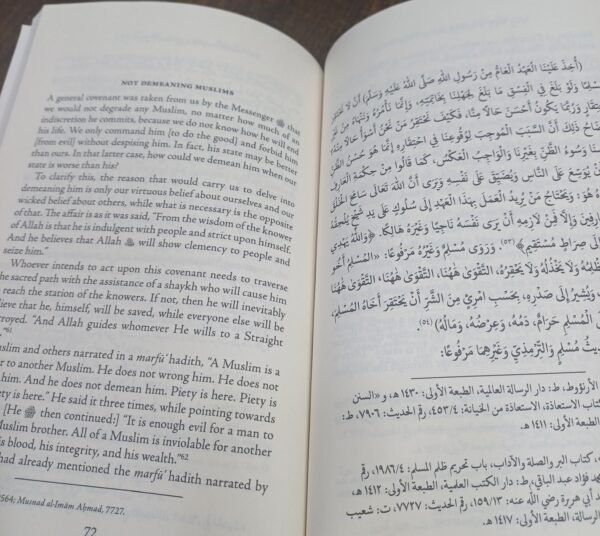 NOT DEMEANING MUSLIMS
A general covenant was taken from us by the Messenger ﷺ that
we would not degrade any Muslim, no matter how much of an
indiscretion he commits, because we do not know how he will end
his life. We only command him [to do the good] and forbid him
[from evil] without despising him. In fact, his state may be better
than ours. In that latter case, how could we demean him when our
state is worse than his?
To clarify this, the reason that would carry us to delve into
demeaning him is only our virtuous belief about ourselves and our
wicked belief about others, while what is necessary is the opposite
of that. The affair is as it was said, "From the wisdom of the knower
of Allah is that he is indulgent with people and strict upon himself,
And he believes that Allah ﷻ will show clemency to people and
seize him."
Whoever intends to act upon this covenant needs to traverse
the sacred path with the assistance of a shaykh who will cause him
reach the station of the knowers. If not, then he will inevitably
believe that he, himself, will be saved, while everyone else will be
destroyed. "And Allah guides whomever He wills to a Straight
"61
Muslim and others narrated in a marfūʿ hadith, "A Muslim is a
to another Muslim. He does not wrong him. He does not
him. And he does not demean him. Piety is here. Piety is
Piety is here." He said it three times, while pointing towards
[He ﷺ then continued:] "It is enough evil for a man to
Muslim brother. All of a Muslim is inviolable for another
his blood, his integrity, and his wealth."62
had already mentioned the marfūʿ hadith narrated by
2564; Musnad al-Imām Aḥmad, 7727.
72
(أُخِذَ عَلَيْنَا الْعَهْدُ الْعَامُّ مِنْ رَسُولِ اللهِ صَلَّى اللهُ عَلَيْهِ وَسَلَّمَ) أَنْ لَا نَحْتَقِرَ
مُسْلِمًا وَلَوْ بَلَغَ فِي الْفِسْقِ مَا بَلَغَ لِجَهْلِنَا بِخَاتِمَتِهِ، وَإِنَّمَا نَأْمُرُهُ وَنَنْهَاهُ مِنْ غَيْرِ
احْتِقَارٍ وَرُبَّمَا يَكُونُ أَحْسَنَ حَالًا مِنَّا، فَكَيْفَ نَحْتَقِرُ مَنْ نَحْنُ أَسْوَأُ حَالًا مِنْهُ
ذَلِكَ أَنَّ السَّبَبَ الْمُوجِبَ لِوُقُوعِنَا فِي احْتِقَارِهِ إِنَّمَا هُوَ حُسْنُ الظَّنِّ
وَسُوءُ الظَّنِّ بِغَيْرِنَا وَالْوَاجِبُ الْعَكْسُ، كَمَا قَالُوا مِنْ حِكْمَةِ الْعَارِفِ
أَنْ يُوَسِّعَ عَلَى النَّاسِ وَيُضَيِّقَ عَلَى نَفْسِهِ وَيَرَى أَنَّ اللهَ تَعَالَى سَامَحَ الْخَلْقَ
هُوَ. وَيَحْتَاجُ مَنْ يُرِيدُ الْعَمَلَ بِهَذَا الْعَهْدِ إِلَى سُلُوكٍ عَلَى يَدِ شَيْخٍ يُلْحِقُهُ
الْعَارِفِينَ وَإِلَّا فَمِنْ لَازِمِهِ أَنْ يَرَى نَفْسَهُ نَاجِيًا وَغَيْرَهُ هَالِكًا. ﴿وَاللَّهُ يَهْدِي
إِلَى صِرَاطٍ مُسْتَقِيمٍ﴾ (٥٣) وَرَوَى مُسْلِمٌ وَغَيْرُهُ مَرْفُوعًا: «الْمُسْلِمُ أَخُو
يَظْلِمُهُ وَلَا يَخْذُلُهُ وَلَا يَحْقِرُهُ، التَّقْوَى هَهُنَا، التَّقْوَى هَهُنَا، التَّقْوَى هَهُنَا،
وَيُشِيرُ إِلَى صَدْرِهِ، بِحَسْبِ امْرِئٍ مِنَ الشَّرِّ أَنْ يَحْتَقِرَ أَخَاهُ الْمُسْلِمَ،
الْمُسْلِمِ حَرَامٌ، دَمُهُ، وَعِرْضُهُ، وَمَالُهُ» (٥٤)
حَدِيثُ مُسْلِمٍ وَالتِّرْمِذِيِّ وَغَيْرِهِمَا مَرْفُوعًا:
الأرنؤوط، ط: دار الرسالة العالمية، الطبعة الأولى: ١٤٣٠ هـ، و «السنن
كتاب الاستعاذة، الاستعاذة من الخيانة: ٤٥٣/٤، رقم الحديث: ٧٩٠٦، ط:
الأولى: ١٤١١ هـ.
كتاب البر والصلة والآداب، باب تحريم ظلم المسلم: ١٩٨٦/٤، رقم
محمد فؤاد عبد الباقي، ط: دار الكتب العلمية، الطبعة الأولى: ١٤١٢ هـ،
أبي هريرة رضي الله عنه: ١٥٩/١٣، رقم الحديث: ٧٧٢٧، ت: شعيب
الرسالة، الطبعة الأولى: ١٤١٧ هـ.